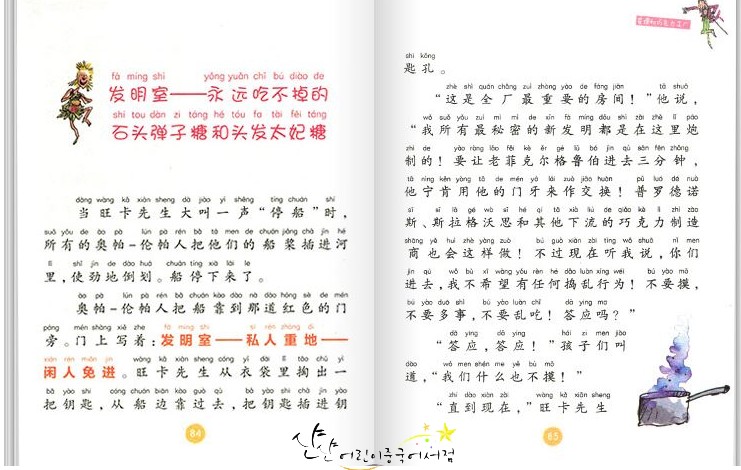 fā míng shì yǒng yuǎn chī bú diào de
发明室——永远吃不掉的
shí tou dàn zi táng hé tóu fa tài fēi táng
石头弹子糖和头发太妃糖
dāng wàng kǎ xiān sheng dà jiào yì shēng tíng chuán shí
当旺卡先生大叫一声“停船”时，
suǒ yǒu de ào pà lún pà rén bǎ tā men de chuán jiǎng chā jìn hé
所有的奥帕-伦帕人把他们的船桨插进河
lǐ shǐ jìn de dào huá chuán tíng xià lái le
里，使劲地倒划。船停下来了。
ào pà lún pà rén bǎ chuán kào dào nà dào hóng sè de mén
奥帕-伦帕人把船靠到那道红色的门
páng mén shàng xiě zhe fā míng shì sī rén zhòng dì
旁。门上写着：发明室——私人重地——
xián rén miǎn jìn wàng kǎ xiān sheng cóng yī dài lǐ tāo chū yì
闲人免进。旺卡先生从衣袋里掏出一
bǎ yào shi cóng chuán biān kào guò qù bǎ yào shi chā jìn yào
把钥匙，从船边靠过去，把钥匙插进钥
84
shi kǒng
匙孔。
zhè shì quán chǎng zuì zhòng yào de fáng jiān tā shuō
“这是全厂最重要的房间！”他说，
wǒ suǒ yǒu zuì mì mì de xīn fā míng dōu shì zài zhè lǐ páo
“我所有最秘密的新发明都是在这里炮
zhì de yào ràng lǎo fēi kè ěr gé lǔ bó jìn qù sān fēn zhōng
制的！要让老菲克尔格鲁伯进去三分钟，
tā nìng kěn yòng tā de mén yá lái zuò jiāo huàn pǔ luó dé nuò
他宁肯用他的门牙来作交换！普罗德诺
sī sī lā gé wò sī hé qí tā xià liú de qiǎo kè lì zhì zào
斯、斯拉格沃思和其他下流的巧克力制造
shāng yě huì zhè yàng zuò bú guò xiàn zài tīng wǒ shuō nǐ men
商也会这样做！不过现在听我说，你们
jìn qù wǒ bù xī wàng yǒu rèn hé dǎo luàn xíng wéi bú yào mō
进去，我不希望有任何捣乱行为！不要摸，
bú yào duō shì bú yào luàn chī dā ying ma
不要多事，不要乱吃！答应吗？”
dā ying dā ying hái zi men jiào
“答应，答应！”孩子们叫
dào wǒ men shén me yě bù mō
道，“我们什么也不摸！”
zhí dào xiàn zài wàng kǎ xiān sheng
“直到现在，”旺卡先生
85
산산 어린이중국어서점